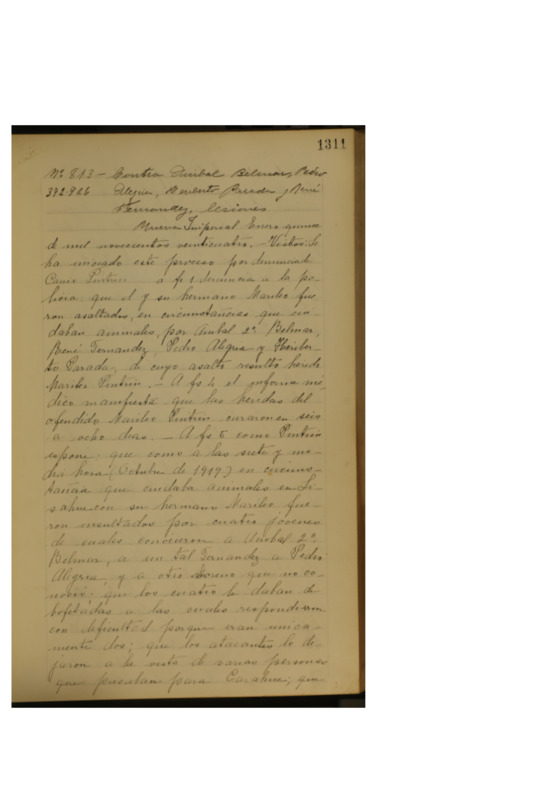 1311
Nº 813 - Contra Anibal Belmar, Pedro
392.926 Alegria, Heriberto Parada y René
Fernandez, lesiones
Nueva Imperial Enero quince
de mil novecientos veinticuatro. - Vistos: Se
ha iniciado este proceso por denuncia de
Pintrin a fs 1 denuncia a la po-
que el y su hermano Marileo fue
ron asaltados, en circunstancias que cui-
daban animales, por Anibal 2º Belmar,
René Fernandez, Pedro Alegria y Heriber-
to Parada, de cuyo asalto resultó herido
Marileo Pintrin. - A fs 4 el informe mé
dico manifiesta que las heridas del
ofendido Marileo Pintrin curaron en seis
a ocho dias. - A fs 5 como Pintrin
espone: que como a las siete y me-
dia hora (Octubre de 1919) en circuns-
tancias que cuidaba animales en
con su hermano Marileo fue-
ron insultados por cuatro jóvenes
de cuales conocieron a Anibal 2º
Belmar, a un tal Fernandez a Pedro
Alegria, y a otro Moreno que no co-
noció; que los cuatro le daban de
bofetadas a las cuales respondieron
con dificultad porque eran unica-
mente dos; que los atacantes lo de-
jaron a la vista de varias personas
que pasaban para Carahue; que